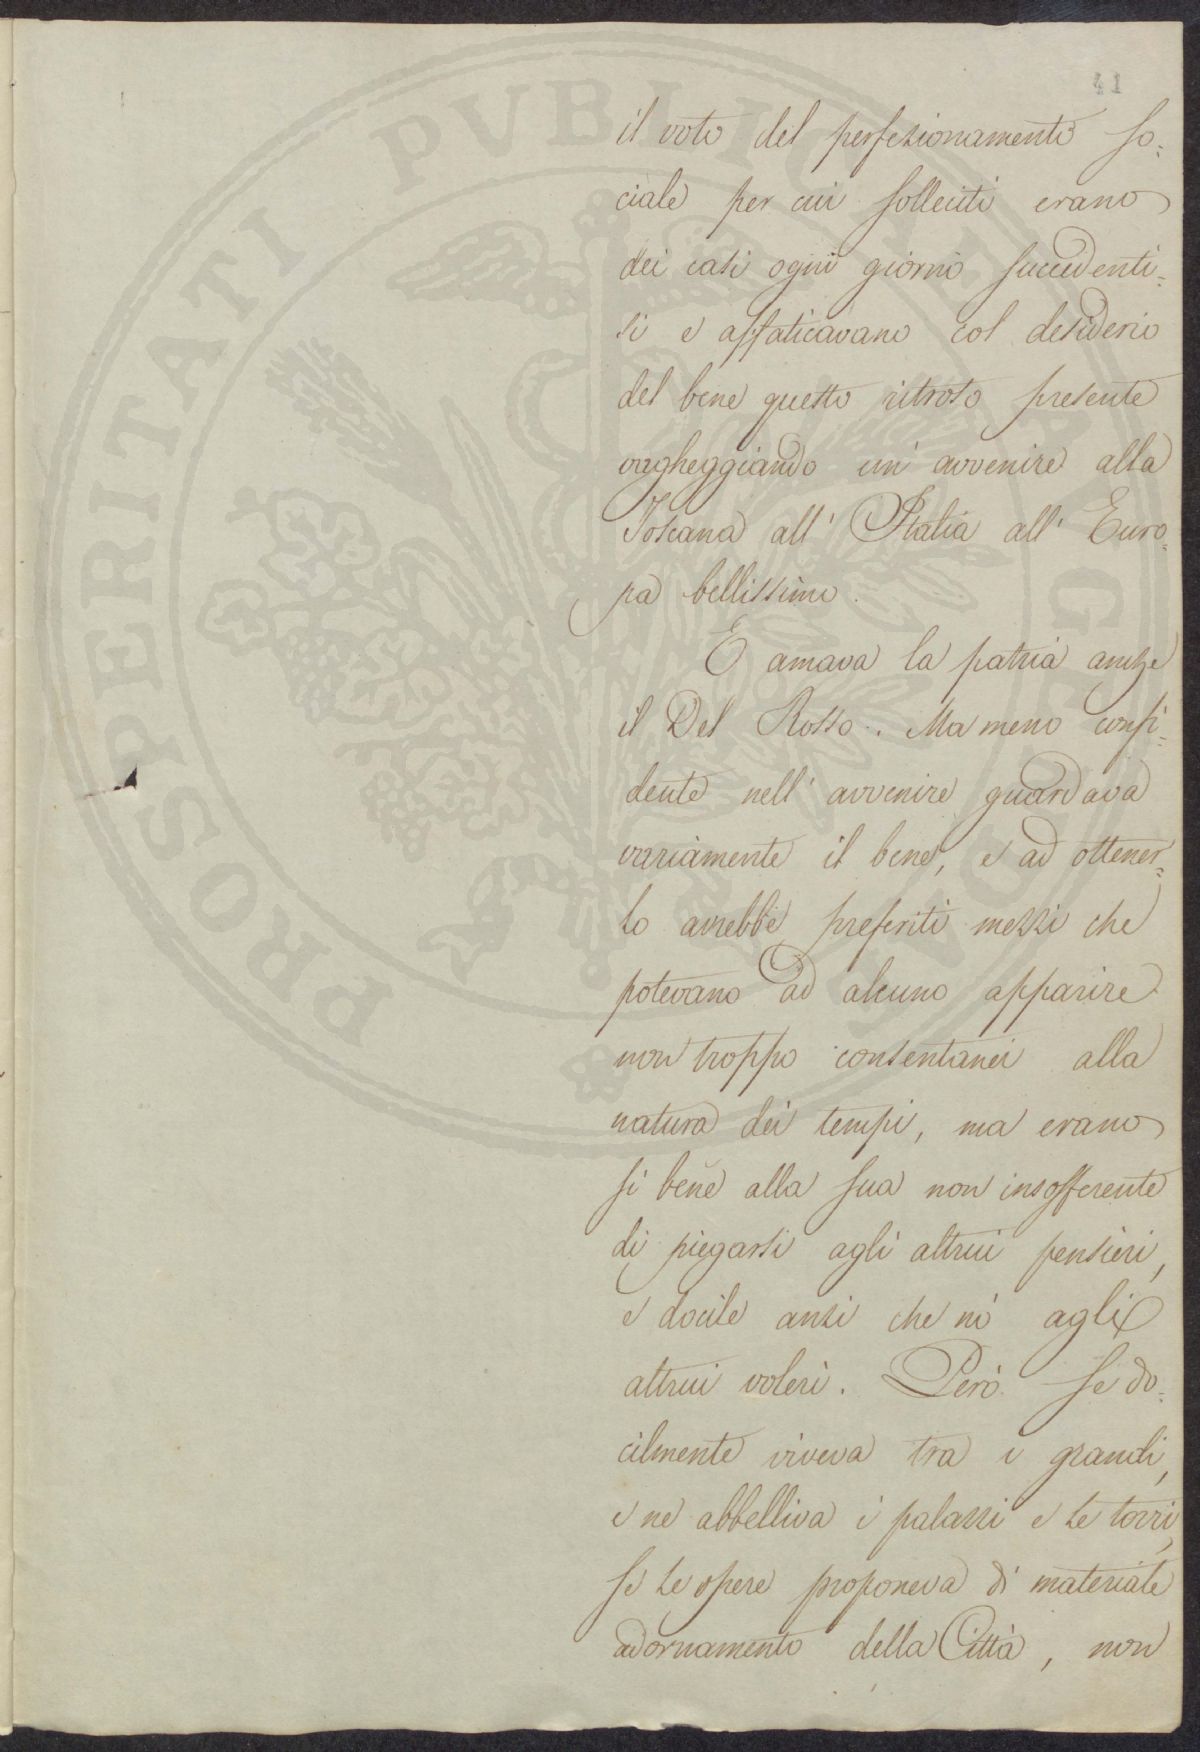 41
il voto del perfezionamento so=
ciale per cui solleciti erano
dei casi ogni giorno succedenti=
si e affaticavano col desiderio
del bene questo ritroso presente
vagheggiando un' avvenire alla
Toscana all' Italia all' Euro=
pa bellissimo.
E amava la patria anche
il Del Rosso. Ma meno confi=
dente nell' avvenire guardava
variamente il bene, e ad ottener=
lo avrebbe preferiti mezzi che
potevano ad alcuno apparire
non troppo consentanei alla
natura dei tempi, ma erano
sì bene alla sua non insofferente
di piegarsi agli altrui pensieri,
e docile anzi che nò agli
altrui voleri. Però se do=
cilmente viveva tra i grandi,
e ne abbelliva i palazzi e le torri,
se le opere proponeva di materiale
adornamento della Città, non
PROSPERITATI PVBLICAE AVGENDAE